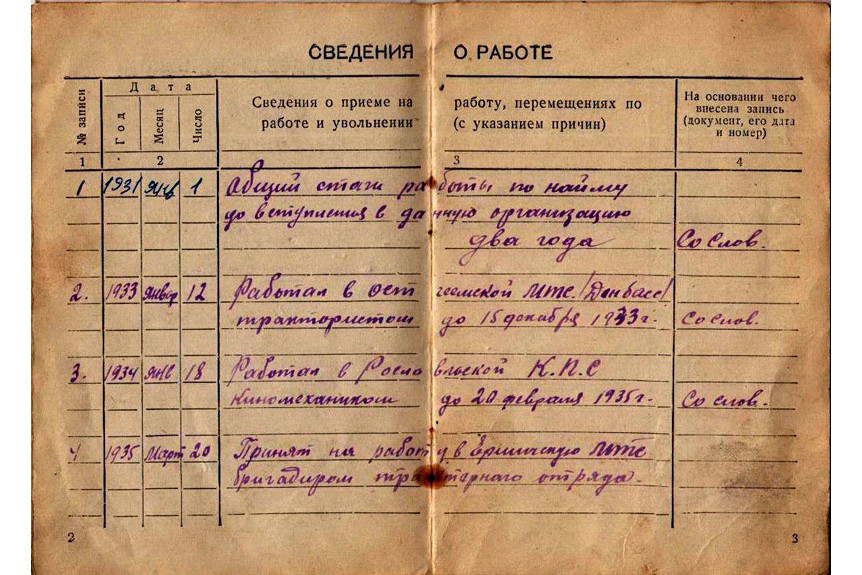 СВЕДЕНИЯ О РАБОТЕ
№ записи
Дата
Год
Месяц
Число
Сведения о приеме на работу, перемещениях по
работе и увольнении (с указанием причин)
На основании чего
внесена запись
(документ, его дата
и номер)
1 2 3 4
1 1931 янв 1 Общий стаж работы по найму
до вступления в данную организацию
два года Со слов.
2. 1933 январ 12 Работал в МТС. /Донбасс/
трактористом до 15 декабря 1933 г. Со слов.
3. 1934 янв 18 Работал в Рославльской К.П.С
Киномехаником до 20 февраля 1935 г. Со слов.
4 1935 Март 20 Принят на работу в Ершичскую МТС
бригадиром тракторного отряда.
2 3